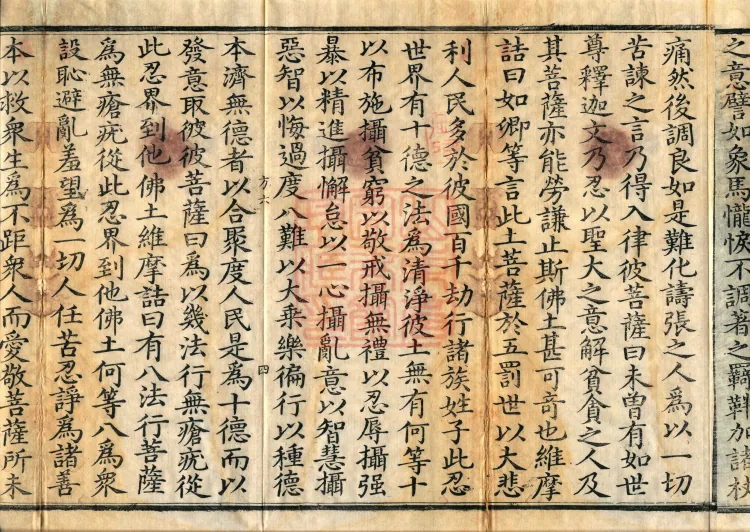 之意譬如象馬𢤱悷不調著之羇靽加諸杖
痛然後調良如是難化譸張之人為以一切
苦諫之言乃得入律彼菩薩曰未曾有如世
尊釋迦文乃忍以聖大之意解貧貪之人及
其菩薩亦能勞謙止斯佛土甚可奇也維摩
詰曰如卿等言此土菩薩於五罰世以大悲
利人民多於彼國百千劫行諸族姓子此忍
世界有十德之法為清淨彼土無有何等十
以布施攝貧窮以敬戒攝無禮以忍辱攝强
暴以精進攝懈怠以一心攝亂意以智慧攝
惡智以悔過度八難以大乘樂徧行以種德
方六 四
本濟無德者以合聚度人民是為十德而以
發意取彼彼菩薩曰為以幾法行無瘡疣從
此忍界到他佛土維摩詰曰有八法行菩薩
為無瘡疣從此忍界到他佛土何等八為眾
設恥避亂羞望為一切人任苦忍諍為諸善
本以救眾生為不距眾人而愛敬菩薩所未